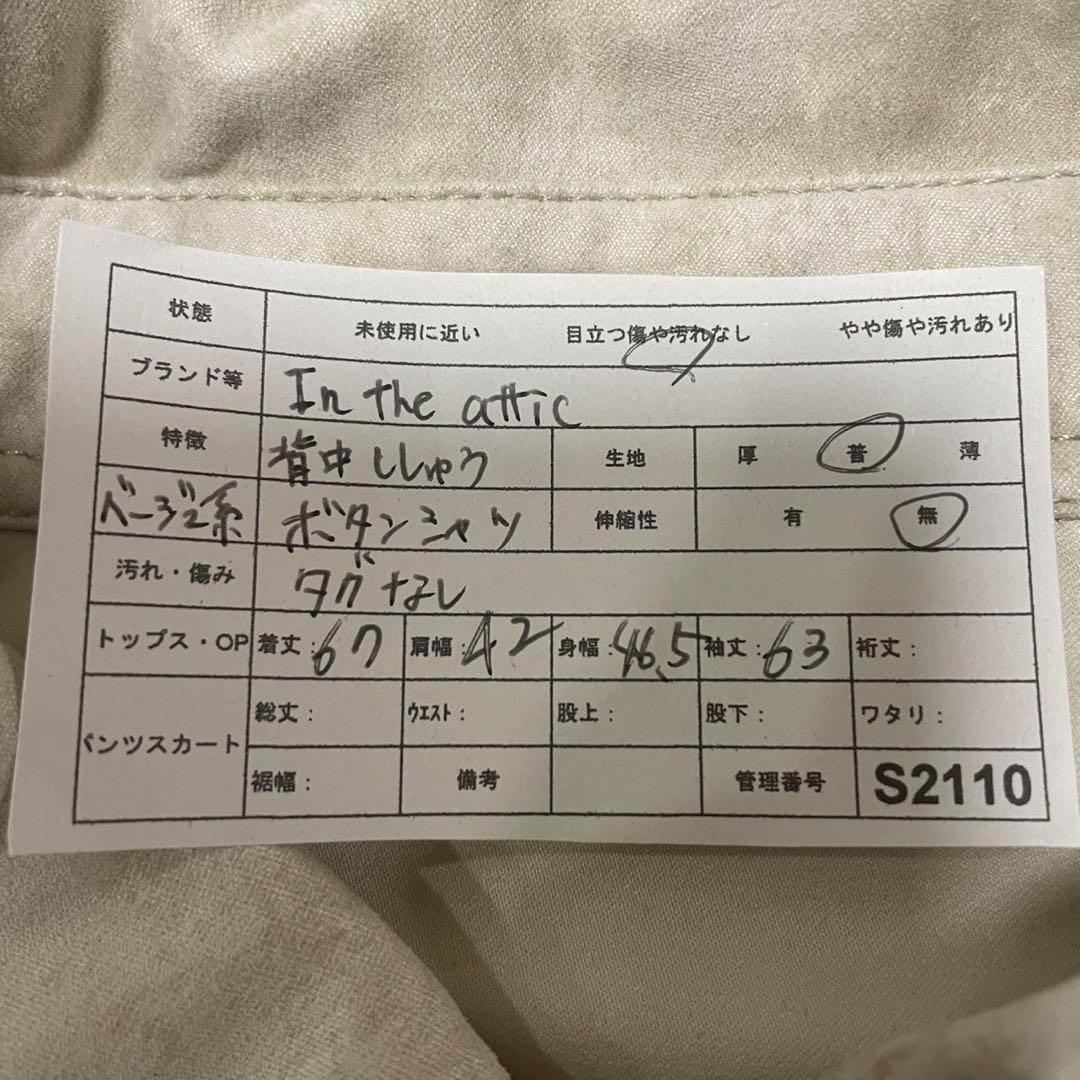 状態 未使用に近い 目立つ傷や汚れなし やや傷や汚れあり
ブランド等 In the attic
特徴 背中ししゅう 生地 厚 普 薄
ベージュ系 ボタンシャツ 伸縮性 有 無
汚れ・傷み タグなし
トップス・OP 着丈:67 肩幅:42 身幅:46.5 袖丈:63 裄丈:
パンツスカート 総丈: ウエスト: 股上: 股下: ワタリ:
裾幅: 備考 管理番号 S2110